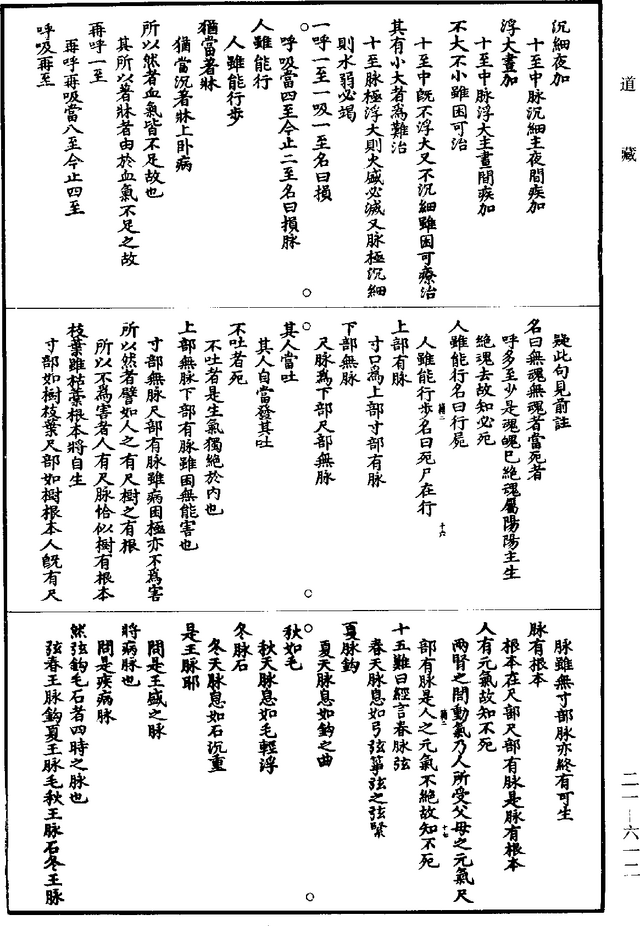 道藏
沉細夜加
十至中脉沉細主夜間疾加
浮大晝加
十至中脉浮大主晝間疾加
不大不小雖困可治
十至中旣不浮大又不沉細雖困可療治
其有小大者爲難治
十至脉極浮大則火盛必滅又脉極沉細
則水弱必竭
一呼一至一吸一至名曰損
呼吸當四至今止二至名曰損脉
人雖能行
人雖能行步
猶當著牀
猶當沉著牀上卧病
所以然者血氣皆不足故也
其所以著牀者由於血氣不足之故
再呼一至
再呼再吸當八至今止四至
呼吸再至
疑此句見前註
名曰無魂無魂者當死者
呼多至少是魂魄已絶魂屬陽陽主生
絶魂去故知必死
人雖能行名曰行屍
人雖能行步名曰死尸在行
十六
上部有脉
寸口爲上部寸部有脉
下部無脉
尺脉爲下部尺部無脉
其人當吐
其人自當發其吐
不吐者死
不吐者是生氣獨絶於內也
上部無脉下部有脉雖困無能害也
寸部無脉尺部有脉雖病困極亦不爲害
所以然者譬如人之有尺樹之有根
所以不爲害者人有尺脉恰似樹有根本
枝葉雖枯槀根本將自生
寸部如樹枝葉尺部如樹根本人旣有尺
脉雖無寸部脉亦終有可生
脉有根本
根本在尺部尺部有脉是脉有根本
人有元氣故知不死
兩腎之間動氣乃人所受父母之元氣尺
部有脉是人之元氣不絶故知不死
十七
十五難曰經言春脉弦
春天脉息如弓弦箏弦之弦緊
夏脉鉤
夏天脉息如鉤之曲
秋如毛
秋天脉息如毛輕浮
冬脉石
冬天脉息如石沉重
是王脉耶
問是王盛之脉
將病脉也
問是疾病脉
然弦鉤毛石者四時之脉也
弦春王脉鉤夏王脉毛秋王脉石冬王脉
二一—六一二